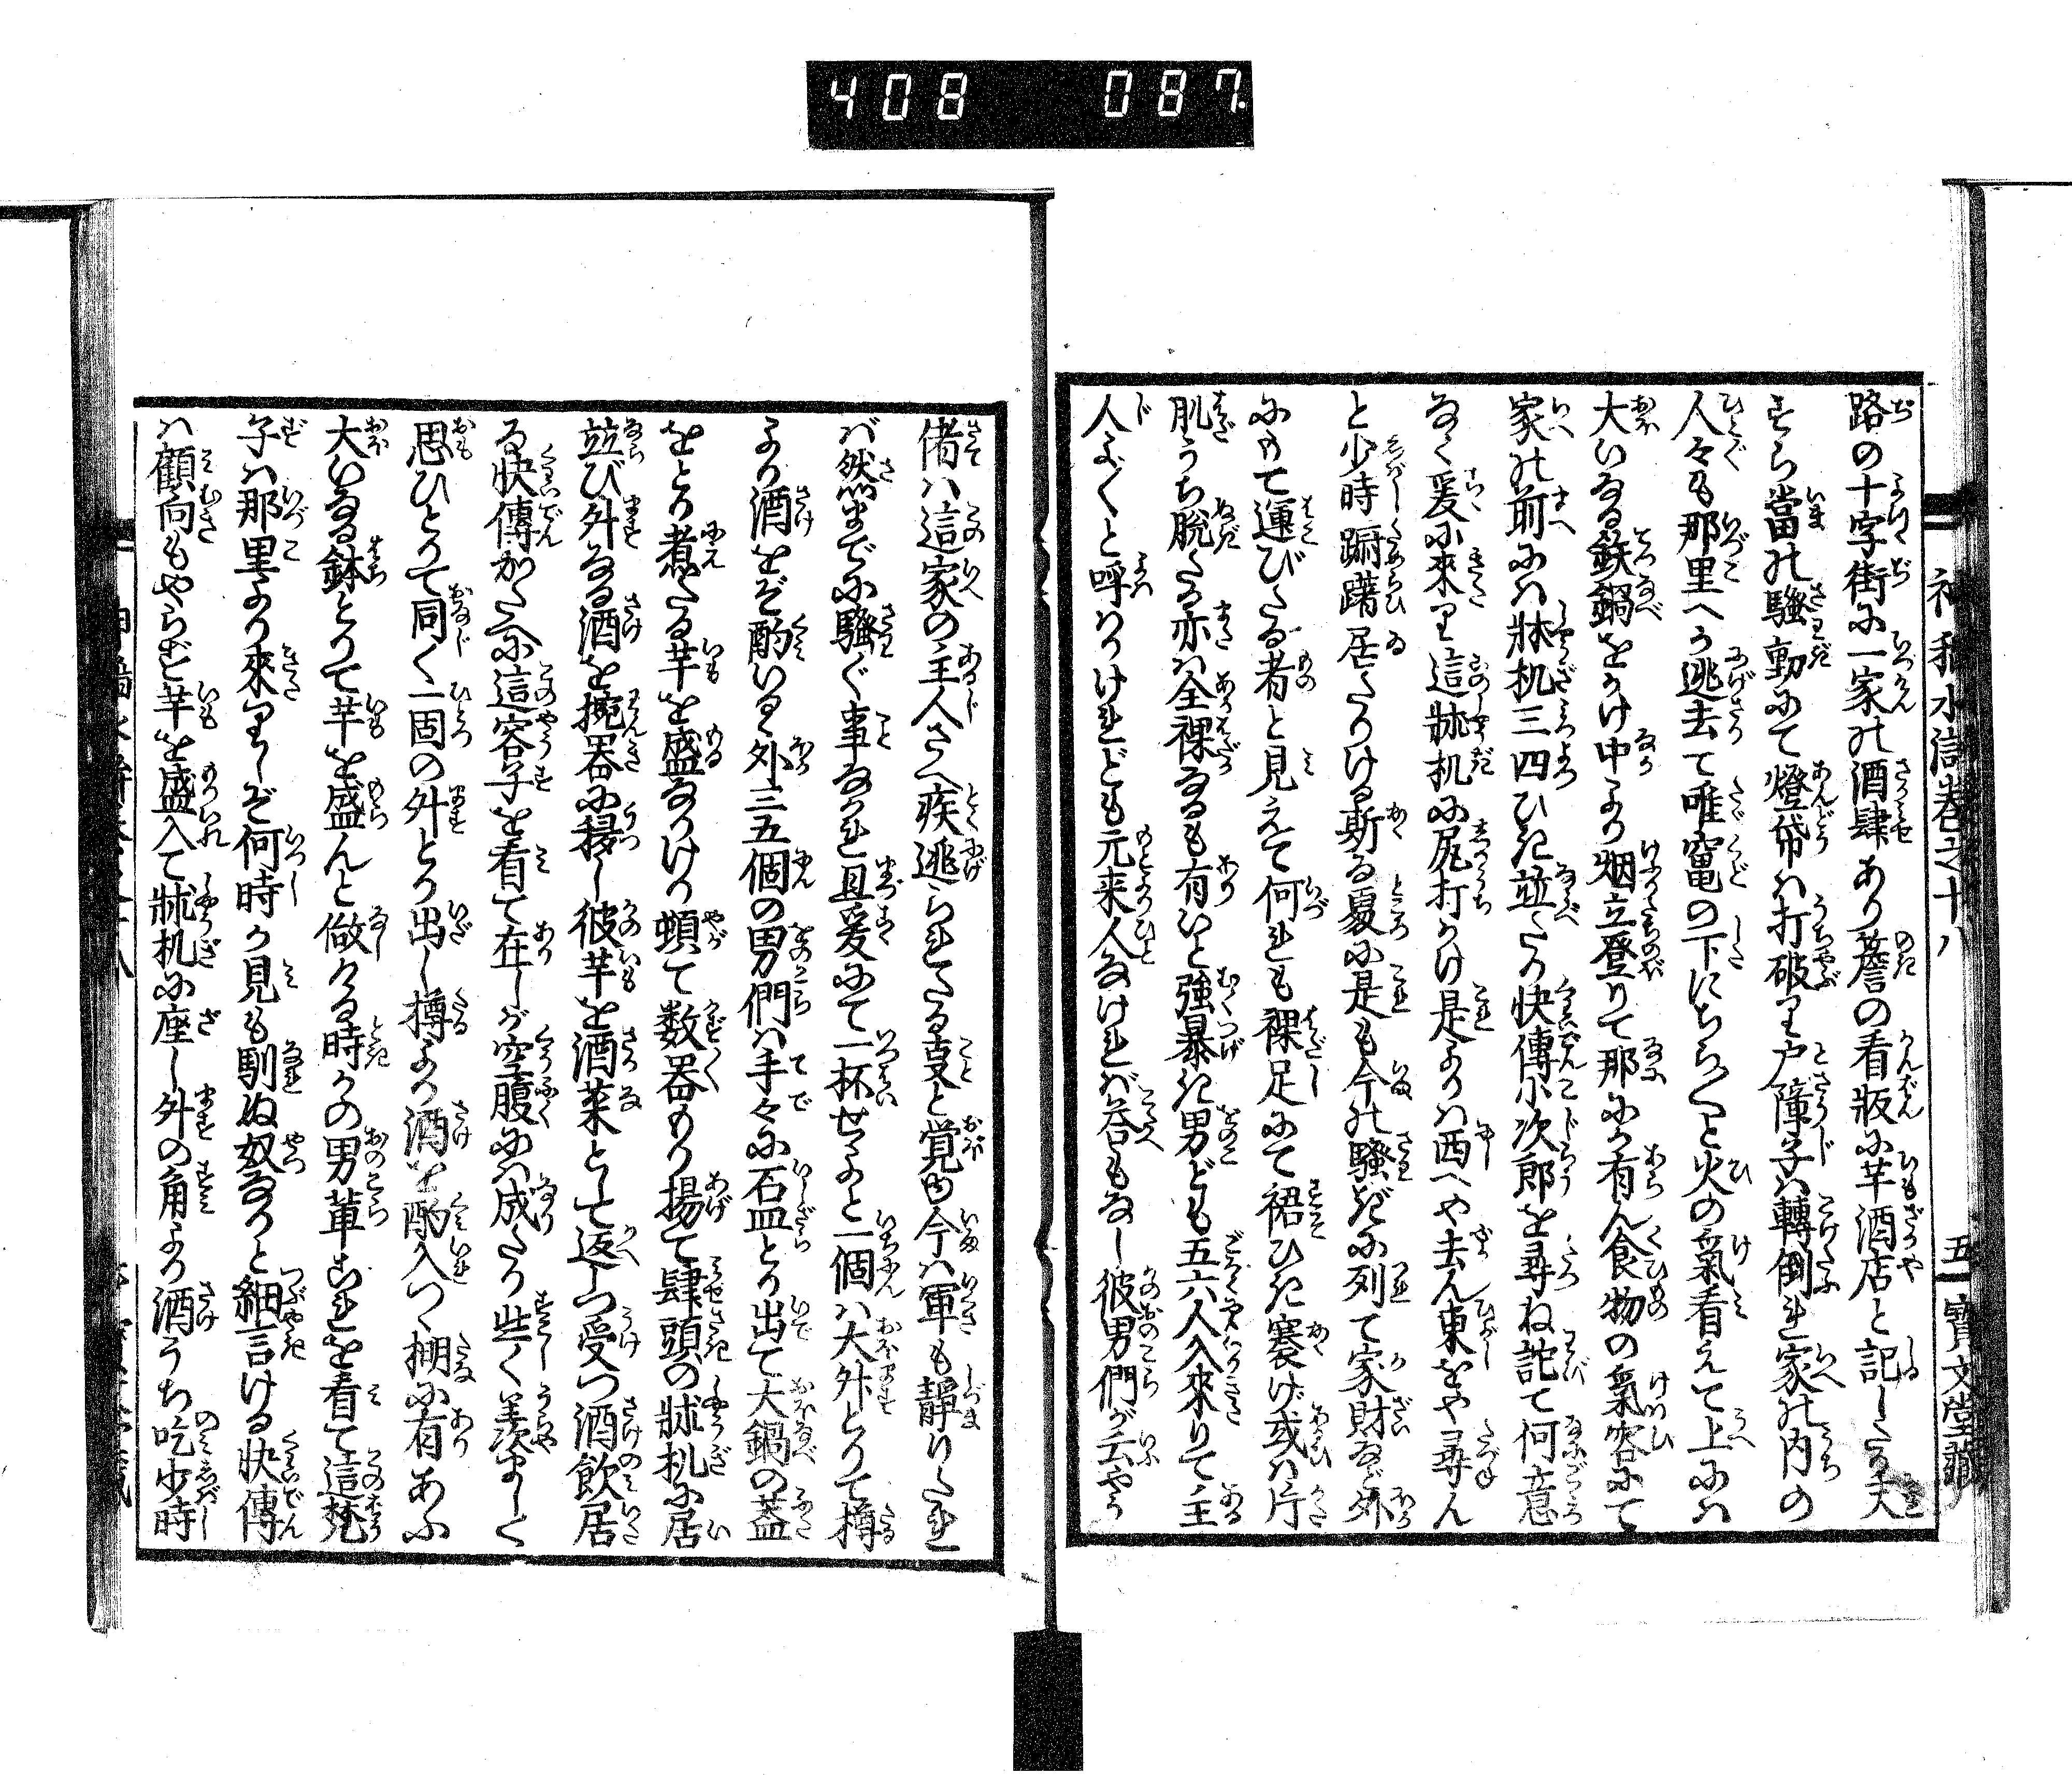 408 087
路の十字街に一家の酒肆あり簷の看板に芋酒店と記したり夫
すら當の騒動にて燈帋は打破れ戸障子は轉倒れ家の内の
人々も那里へか逃去て唯竈の下にちら〳〵と火の氣看えて上には
大いなる鉄鍋をかけ中より烟立登りて那にか有ん食物の氣容にて
家の前には牀机三四ひき並たり快傳小次郎を尋ね詫て何意
なく爰に來り這牀机に尻打かけ是よりは西へや去ん東をや尋ん
と少時躊躇居たりける斯る処に是も今の騒ぎに列て家財など外
にもて運びたる者と見えて何れも裸足にて裙ひき褰げ或は片
肌うち脱たる亦は全裸なるも有いと強暴き男ども五六人入來りて主
人よ〳〵と呼はりけれども元来人なければ荅もなし彼男們が云やう
偖は這家の主人さへ疾逃られたる支と覚ゆ今は軍も静りたれ
ば然まで に騒ぐ事なかれ且爰にて一杯せよと一個は大舛とりて樽
より酒をぞ酌いる外三五個の男們は手々に石皿とり出て大鍋の蓋
をとり煮たる芋を盛なりけり頓て数器もり揚て肆頭の牀机に居
並び舛なる酒を椀器に移し彼芋を酒菜として返しつ受つ酒飲居
る快傳かたへに這容子を看て在しが空腹には成たり些しく羨ましく
思ひとりて同く一固の舛とり出し樽より酒を酌入つゝ棚に有あふ
大いなる鉢とりて芋を盛んと做ける時かの男輩これを看て這梵
子は那里より來りしぞ何時か見も馴ぬ奴なりと細言ける快傳
は顧向もやらずと芋を盛入て牀机に座し舛の角より酒うち吃少時
水滸巻之十八
五
寳文堂藏